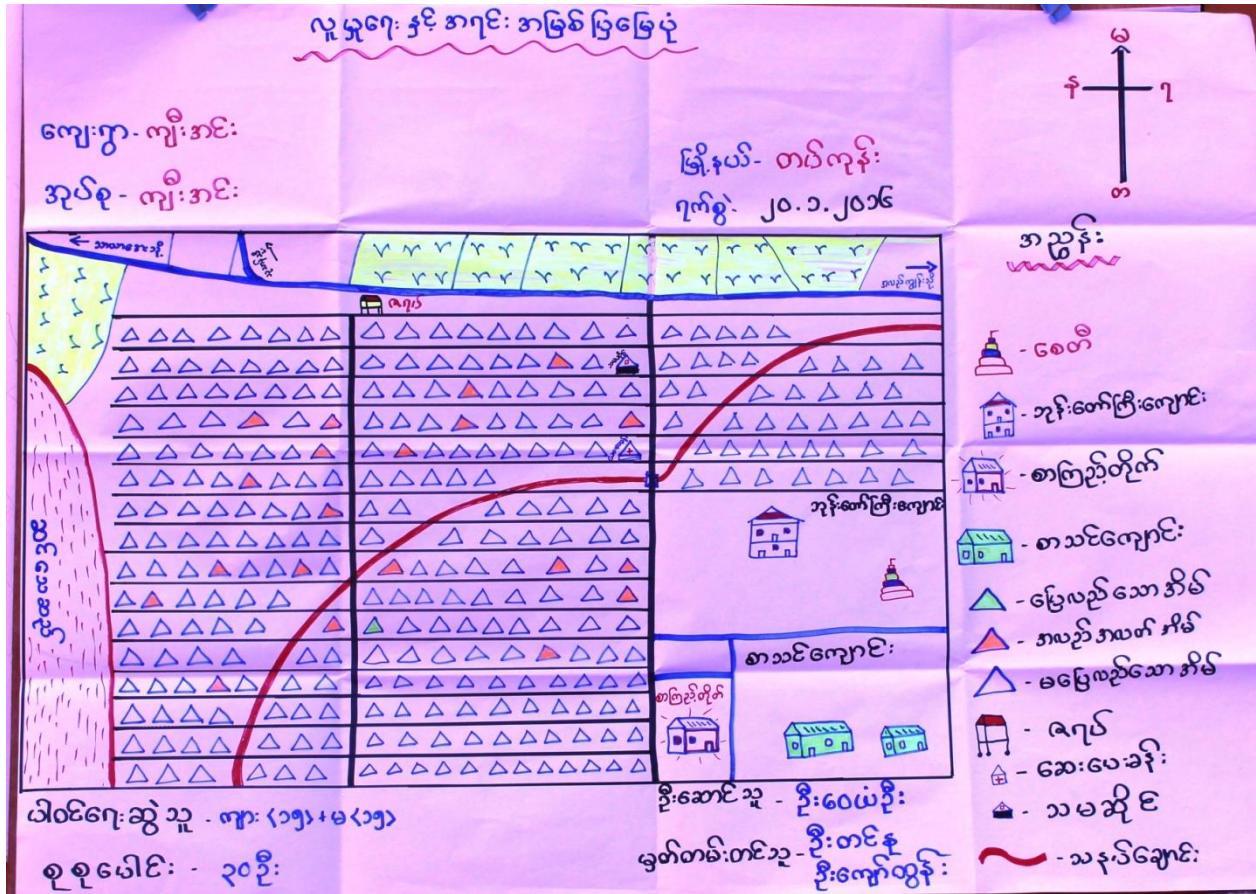 လူမှုရေး နှင့် အရင်းအမြစ်ပြမြေပုံ
ကျေးရွာ - ကျီးအင်း
အုပ်စု - ကျီးအင်း
မြို့နယ် - တပ်ကုန်း
ရက်စွဲ. ၂၀.၁.၂၀၁၆
မ
န
ရ
တ
အညွှန်း
- စေတီ
- ဘုန်းတော်ကြီးကျောင်း
- စာကြည့်တိုက်
- စာသင်ကျောင်း
- ပြေလည်သောအိမ်
- အလည်အလတ်အိမ်
- မပြေလည်သောအိမ်
- ဇရပ်
- ဆေးပေးခန်း
- သမဆိုင်
- သနပ်ချောင်း
ဇရပ်
ဘုန်းတော်ကြီးကျောင်း
စာသင်ကျောင်း
စာကြည့်တိုက်
ပါဝင်ရေးဆွဲသူ - ကျား <၁၅> + မ <၁၅>
စုစုပေါင်း - ၃၀ဦး
ဦးဆောင်သူ - ဦးဝေယံဦး
မှတ်တမ်းတင်သူ - ဦးတင်နု
ဦးကျော်ထွန်း